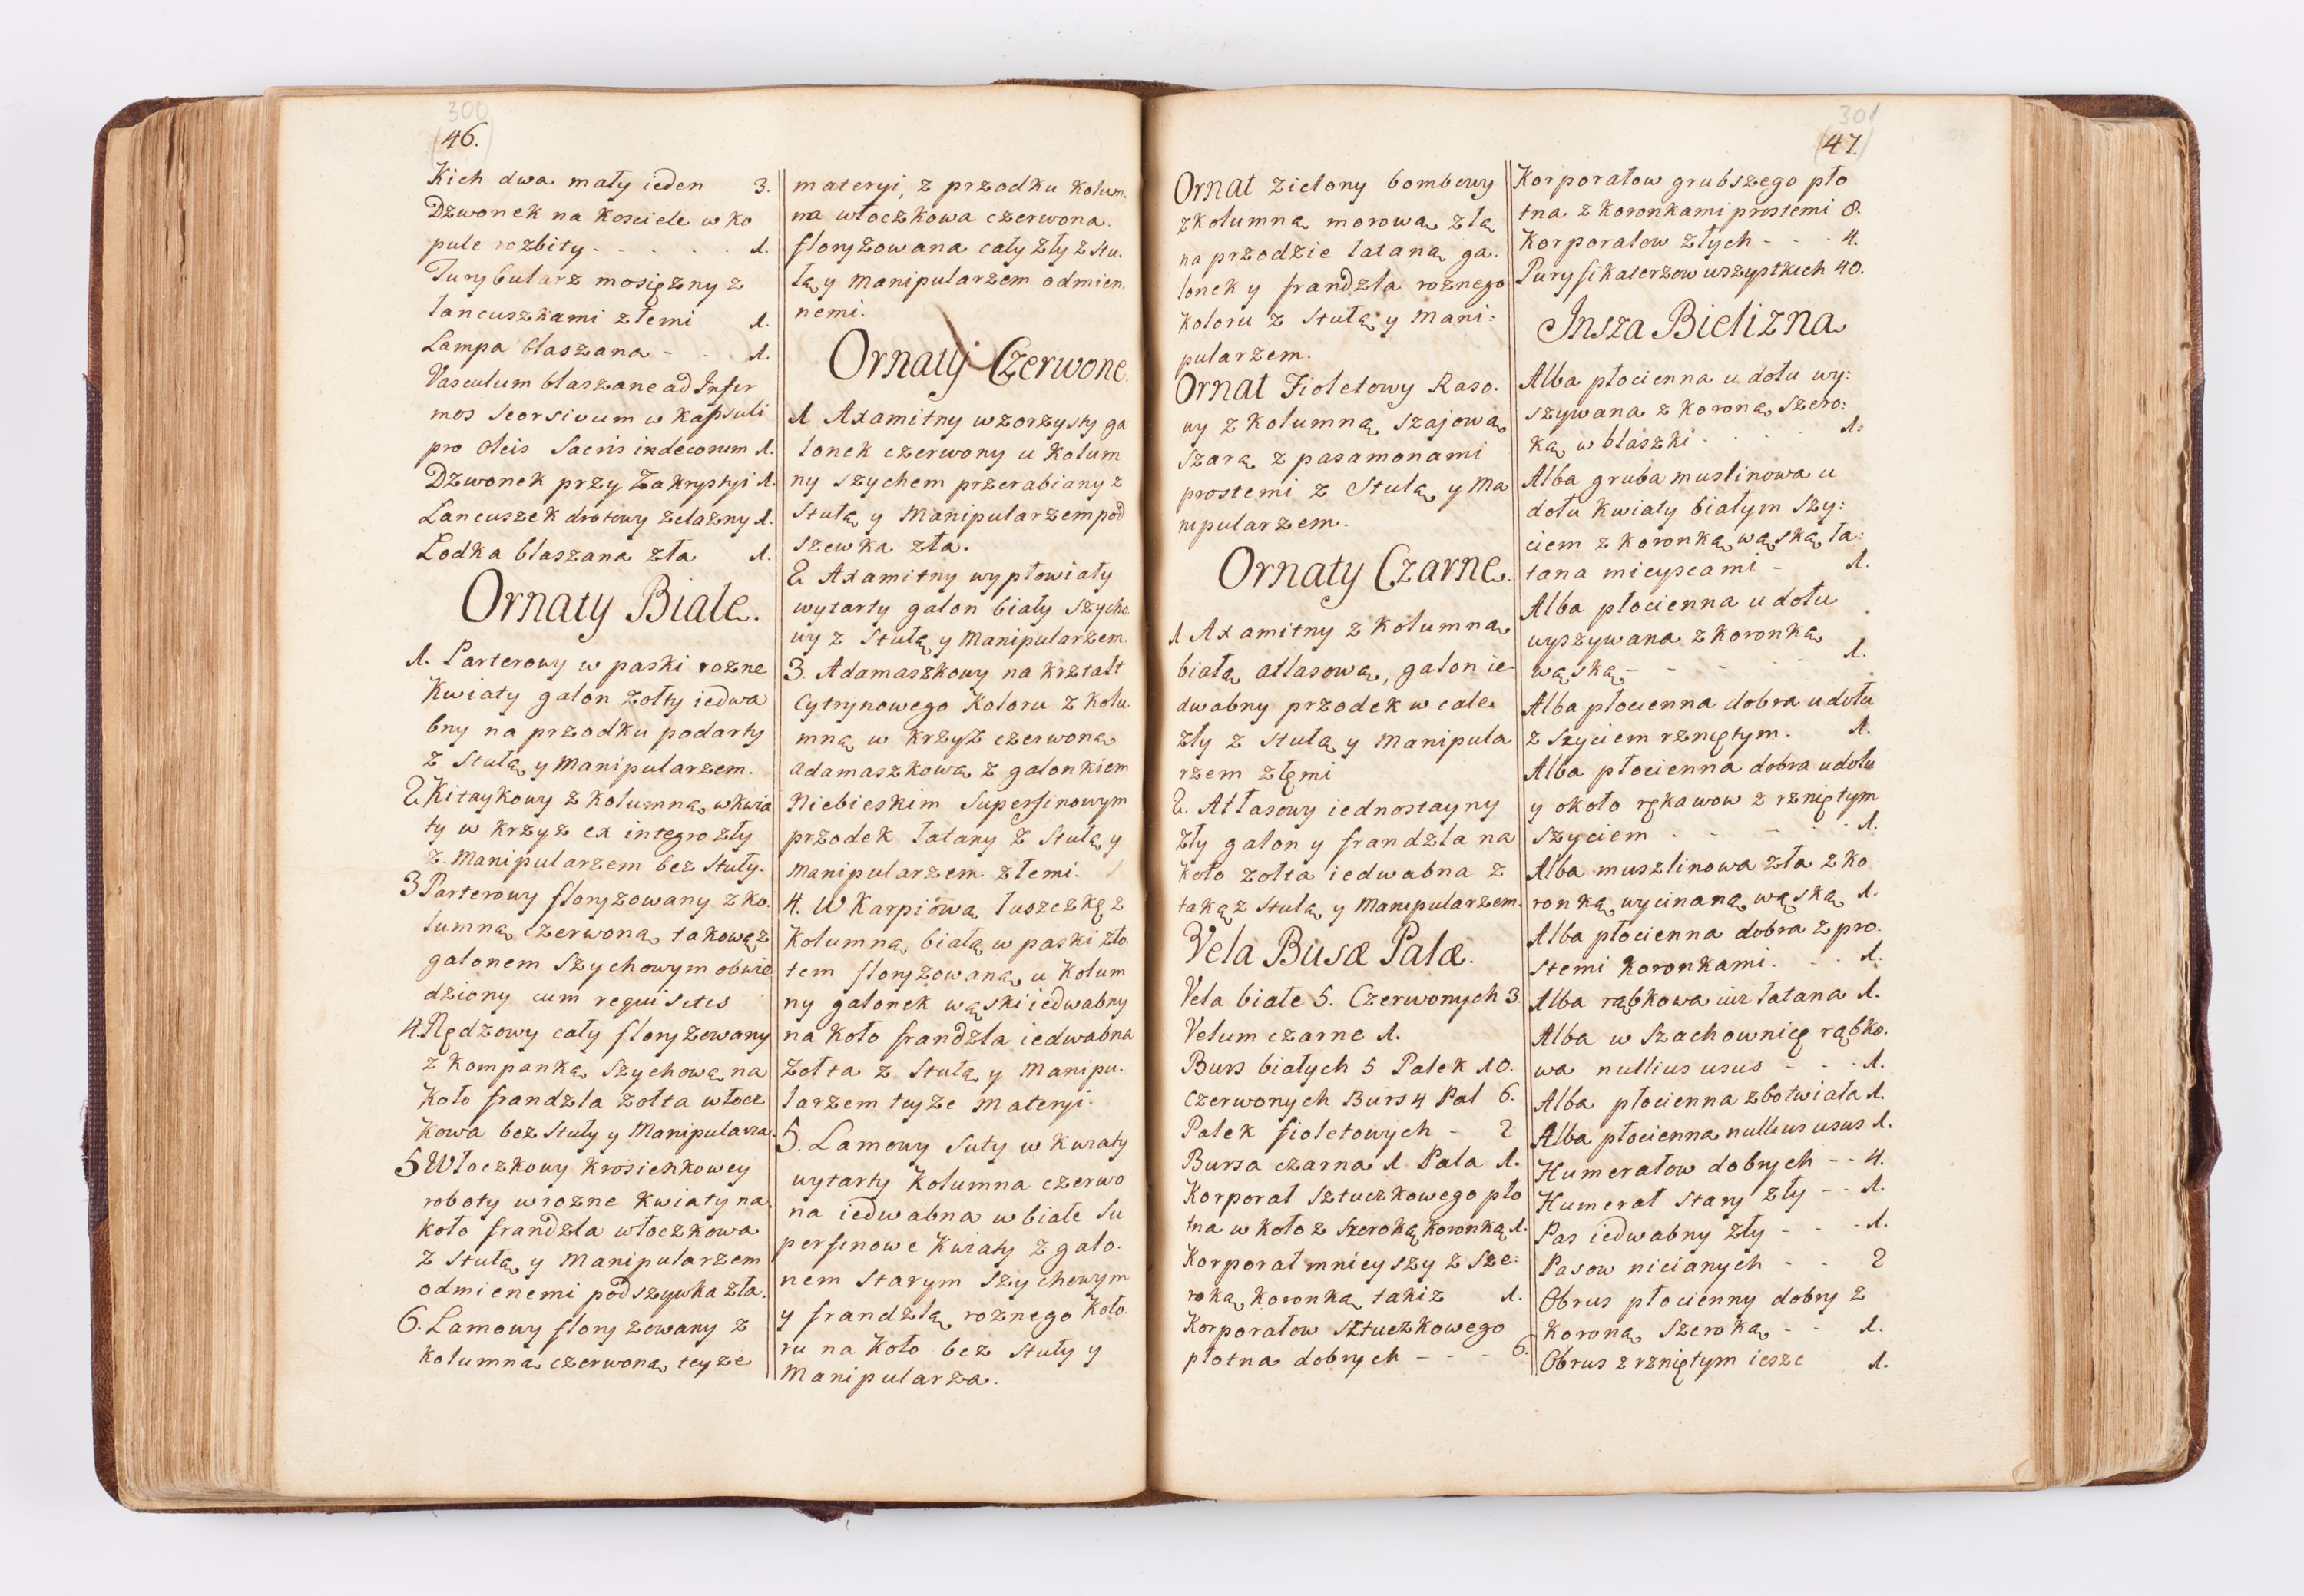 300
46.
Kich dwa mały ieden 3.
Dzwonek na Kosciele w ko
pule rozbity - - - - - 1.
Turybularz mosiężny z
łancuszkami złemi 1.
Lampa blaszana - - 1.
Vasculum blaszane ad Infir
mos seorsivum w Kapsuli
pro Oleis Sacris indecorum 1.
Dzwonek przy Zakrystyi 1.
Lancuszek drotowy zelazny 1.
Lodka blaszana zła 1.
Ornaty Białe.
1. Parterowy w paski rozne
Kwiaty galon zołty iedwa
bny na przodku podarty
z Stułą y Manipularzem.
2 Kitaykowy z kolumną w kwia
ty w krzyz ex integro zły
z Manipularzem bez Stuły.
3 Parterowy floryzowany z ko.
lumną czerwoną takową z
galonem szychowym obwie
dziony cum requisitis
4. Rędzowy cały floryzowany
z kompanką szychową na
koło frandzla zołta włocz
kowa bez Stuły y Manipularza.
5 Włoczkowy krosienkowey
roboty w rozne kwiaty na
koło frandzla włoczkowa
z Stułą y Manipularzem
odmienemi podszywka zła.
6. Lamowy floryzowany z
kolumną czerwoną teyze
materyi, z przodku kolum.
na włoczkowa czerwona.
floryzowana cały zły z stu.
łą y Manipularzem odmien.
nemi.
Ornaty Czerwone.
1 Axamitny wzorzysty ga
lonek czerwony u kolum
ny szychem przerabiany z
Stułą y Manipularzem pod
szewka zła.
2 Axamitny wypłowiały
wytarty galon biały szycho.
wy z Stułą y Manipularzem.
3. Adamaszkowy na krztałt
Cytrynowego Koloru z kolu.
mną w krzyz czerwoną
adamaszkową z galonkiem
Niebieskim Superfinowym
przodek łatany z Stułą y
Manipularzem złemi.
4. W Karpiową łuszczkę z
Kolumną białą w paski zło.
tem floryzowaną u Kolum
ny galonek wąski iedwabny
na koło frandzla iedwabna
zołta z Stułą y Manipu.
larzem teyze Materyi.
5. Lamowy suty w kwiaty
wytarty Kolumna czerwo
na iedwabna w białe Su
perfinowe Kwiaty z galo.
nem starym szychowym
y frandzlą roznego Koło.
ru na Koło bez Stuły y
Manipularza.
301
47.
Ornat zielony bombowy
z kolumną morową złą
na przodzie łataną ga.
lonek y frandzla roznego
koloru z Stułą y Mani:
pularzem.
Ornat Fioletowy Raso.
wy z kolumną szajową
szarą z pasamonami
prostemi z Stułą y Ma
nipularzem.
Ornaty Czarne.
1 Axamitny z kolumną
białą atłasową, galon ie
dwabny przodek w cale
zły z Stułą y Manipula
rzem złęmi
2. Atłasowy iednostayny
zły galon y frandzla na
koło zołta iedwabna z
taką z Stułą y Manipularzem.
Vela Busæ Palæ.
Vela białe 5. Czerwonych 3.
Velum czarne 1.
Burs białych 5 Palek 10.
czerwonych Burs 4 Pal 6.
Palek fioletowych - 2
Bursa czarna 1 Pala 1.
Korporał sztuczkowego pło
tna w koło z szeroką koronką 1.
Korporał mnieyszy z sze:
roką koronką takiz 1.
Korporałow sztuczkowego
płotna dobrych - - - 6.
Korporałow grubszego pło
tna z koronkami prostemi 8.
Korporałow złych - - - 4.
Puryfikaterzow wszystkich 40.
Insza Bielizna
Alba płocienna u dołu wy:
szywana z koroną szero:
ką w błaszki - - - - 1:
Alba gruba muslinowa u
dołu kwiaty białym szy:
ciem z koronką wąską ła:
tana mieyscami - 1.
Alba płocienna u dołu
wyszywana z koronką
wąską - - - - - 1.
Alba płocienna dobra u dołu
z szyciem rzniętym. 1.
Alba płocienna dobra u dołu
y około rękawow z rzniętym
szyciem - - - - - 1.
Alba muszlinowa zła z ko
ronką wycinaną wąską 1.
Alba płocienna dobra z pro.
stemi koronkami. - - 1.
Alba rąbkowa iuz łatana 1.
Alba w szachownicę rąbko.
wa nullius usus - - - 1.
Alba płocienna zbotwiała 1.
Alba płocienna nullius usus 1.
Humerałow dobrych - - 4.
Humerał stary zły - - 1.
Pas iedwabny zły - - - 1.
Pasow nicianych - - 2
Obrus płocienny dobry z
koroną szeroką - - 1.
Obrus z rzniętym iesze 1.